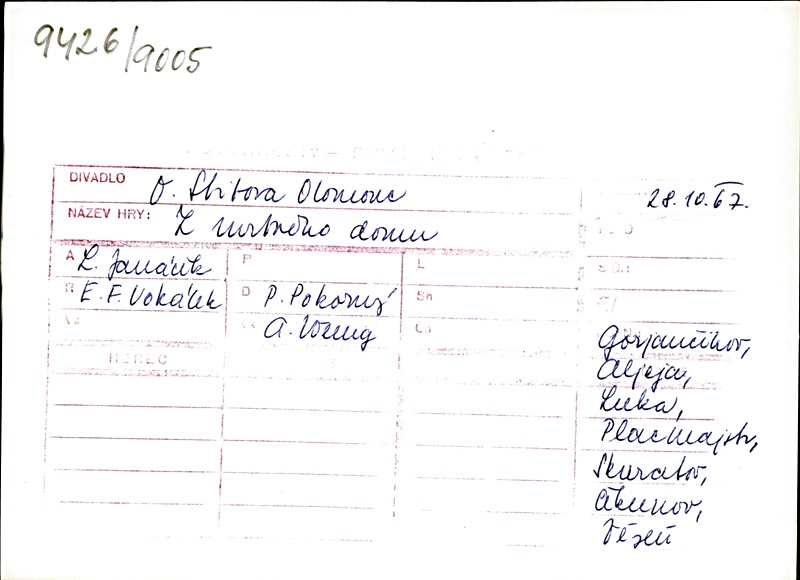 9426/9005
DIVADLO O. Stibora Olomouc 28.10.67.
NÁZEV HRY: Z mrtvého domu
A L. Janáček P L
R E. F. Vokálek D P. Pokorný Sh
A. Wenig
HEREC
Gorjančikov,
Aljeja,
Luka,
Placmajstr,
Skuratov,
Čekunov,
Vězeň